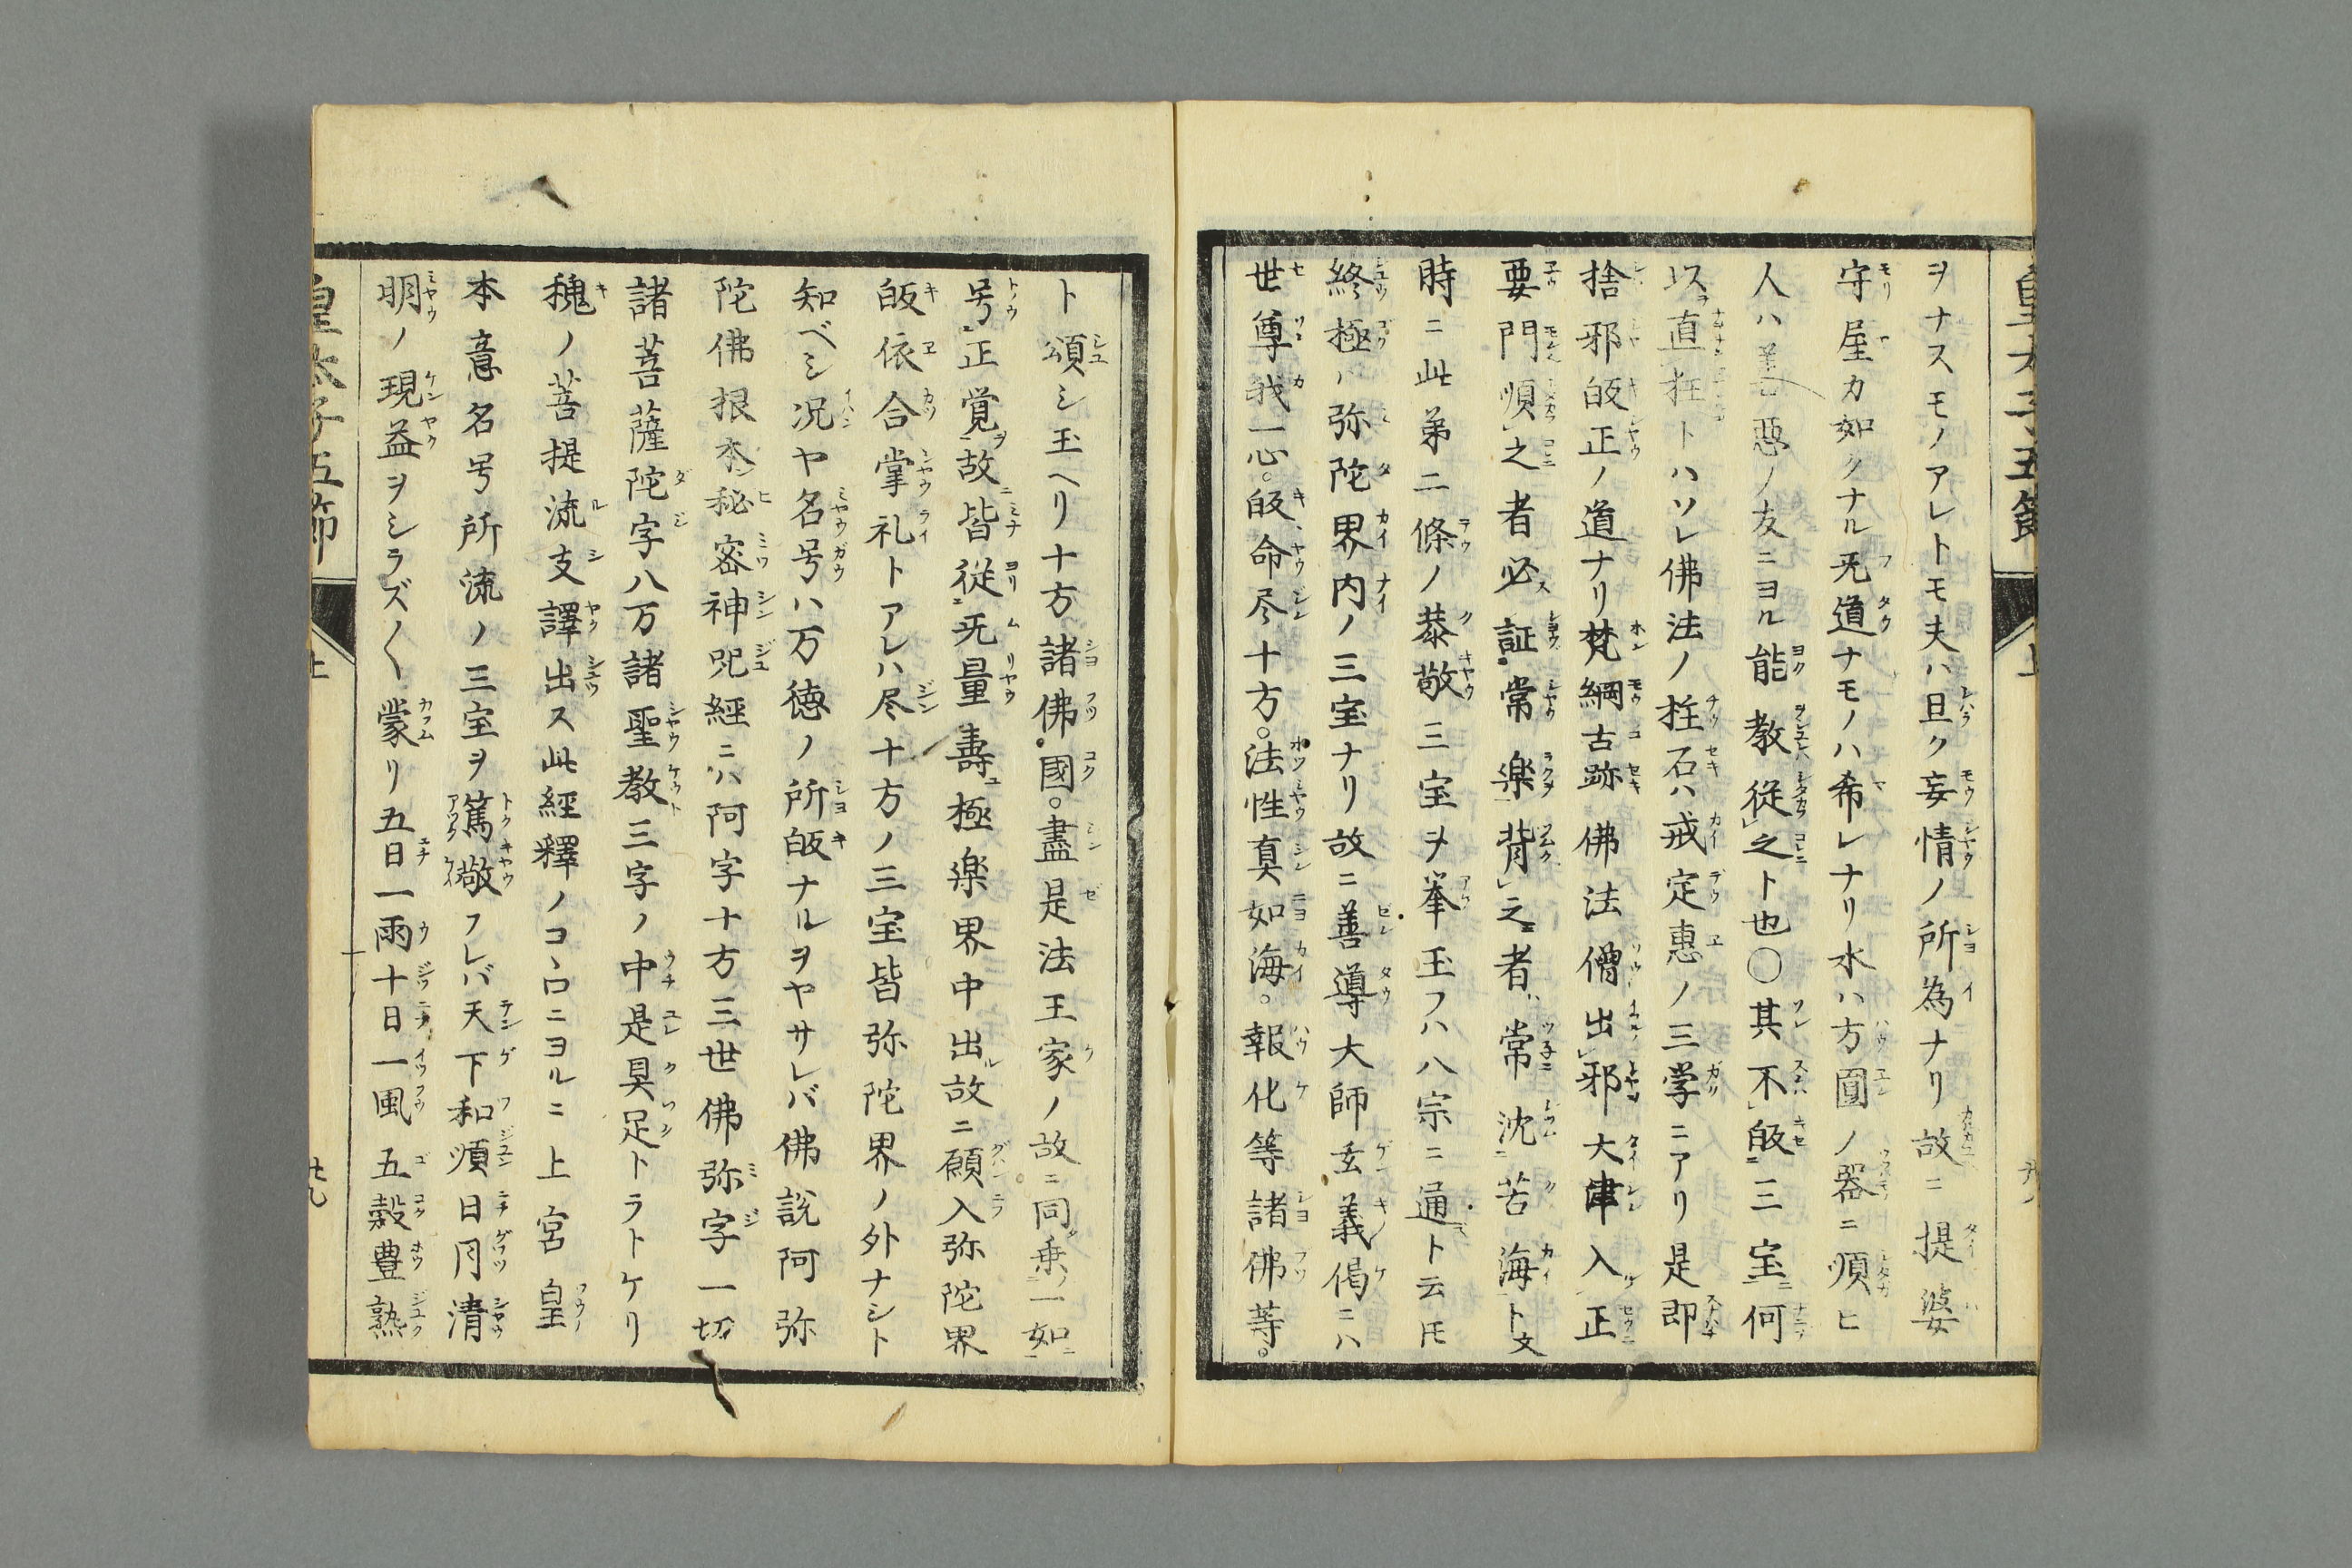 皇太子五節
上
ヲナスモノアレトモ夫ハ旦ク妄情ノ所為ナリ故ニ提婆
守屋カ如クナル无道ナモノハ希レナリ水ハ方圓ノ器ニ順ヒ
人ハ善惡ノ友ニヨル能教従之ト也〇其不皈三宝何
以直枉トハソレ佛法ノ柱石ハ戒定惠ノ三学ニアリ是即
捨邪皈正ノ道ナリ梵綱古跡佛法僧出邪大津入正
要門順之者必証常楽背之者常沈苦海ト文
時ニ此第二條ノ恭敬三宝ヲ挙玉フハ八宗ニ通ト云𪜈
終極ハ弥陀界内ノ三宝ナリ故ニ善導大師玄義偈ニハ
世尊我一心。皈命尽十方。法性真如海。報化等諸佛等。
ト頌シ玉ヘリ十方諸佛國。盡是法王家ノ故ニ同乗一如
号正覚故皆従无量壽極楽界中出故ニ願入弥陀界
皈依合掌礼トアレハ尽十方ノ三宝皆弥陀界ノ外ナシト
知ベシ况ヤ名号ハ万徳ノ所皈ナルヲヤサレバ佛説阿弥
陀佛根本秘密神咒經ニハ阿字十方三世佛弥字一切
諸菩薩陀字八万諸聖教三字ノ中是具足トラトケリ
穐ノ菩提流支譯出ス此經釋ノコヽロニヨルニ上宮皇
本意名号所流ノ三宝ヲ篤敬フレバ天下和順日月清
明ノ現益ヲシラズ〱蒙リ五日一雨十日一風五穀豊熟
皇太子五節
上
廿九